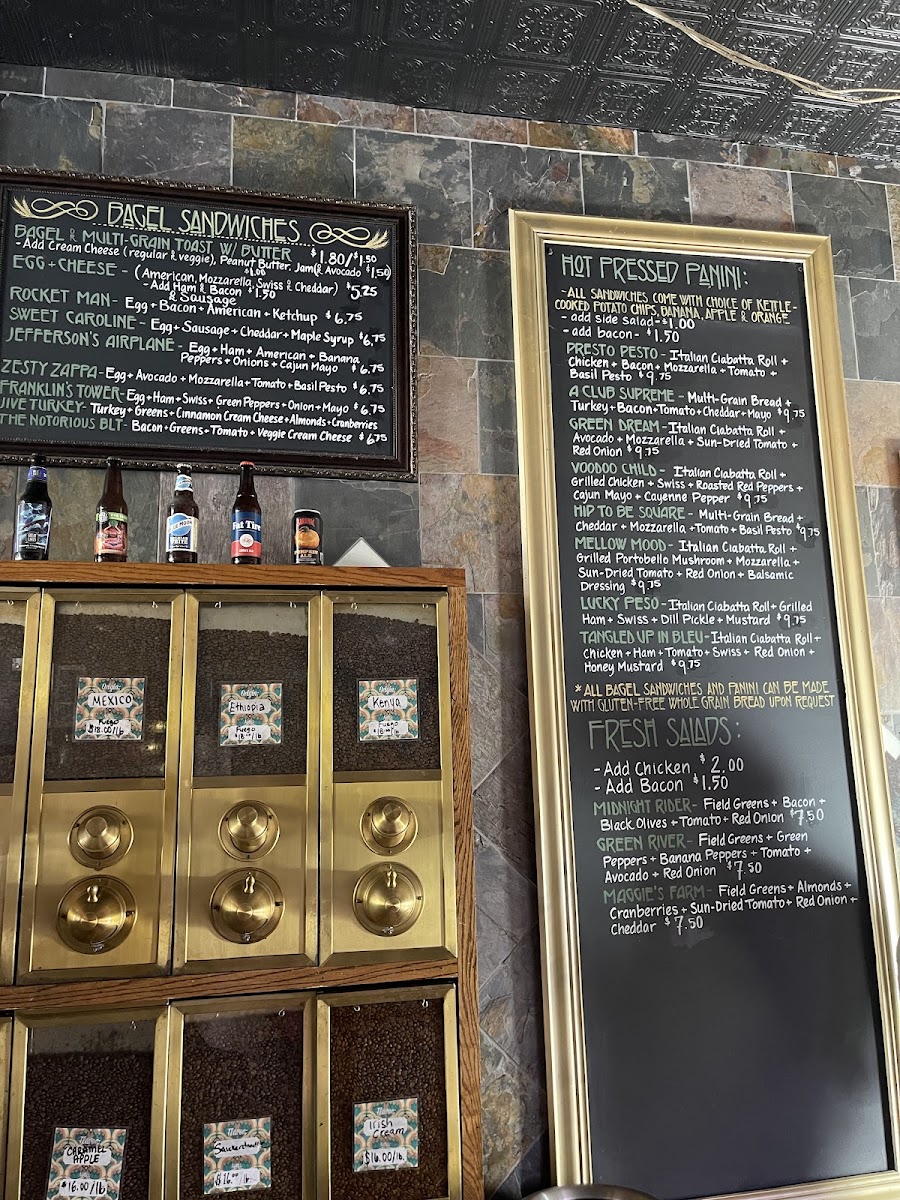 BAGEL SANDWICHES
BAGEL & MULTI-GRAIN TOAST W/ BUTTER $1.80/$1.50
- Add Cream Cheese (regular & veggie), Peanut Butter, Jam(& Avocado $1.50)
$1.00
EGG + CHEESE - (American, Mozzarella, Swiss & Cheddar) $5.25
- Add Ham & Bacon $1.50
& Sausage
ROCKET MAN - Egg + Bacon + American + Ketchup $6.75
SWEET CAROLINE - Egg + Sausage + Cheddar + Maple Syrup $6.75
JEFFERSON'S AIRPLANE - Egg + Ham + American + Banana
Peppers + Onions + Cajun Mayo $6.75
ZESTY ZAPPA - Egg + Avocado + Mozzarella + Tomato + Basil Pesto $6.75
FRANKLIN'S TOWER - Egg + Ham + Swiss + Green Peppers + Onion + Mayo $6.75
JIVE TURKEY - Turkey + Greens + Cinnamon Cream Cheese + Almonds + Cranberries
THE NOTORIOUS BLT - Bacon + Greens + Tomato + Veggie Cream Cheese $6.75
HOT PRESSED PANINI:
- ALL SANDWICHES COME WITH CHOICE OF KETTLE-
COOKED POTATO CHIPS, BANANA, APPLE & ORANGE
- add side salad - $1.00
- add bacon - $1.50
PRESTO PESTO - Italian Ciabatta Roll +
Chicken + Bacon + Mozzarella + Tomato +
Basil Pesto $9.75
A CLUB SUPREME - Multi-Grain Bread +
Turkey + Bacon + Tomato + Cheddar + Mayo $9.75
GREEN DREAM - Italian Ciabatta Roll +
Avocado + Mozzarella + Sun-Dried Tomato +
Red Onion $9.75
VOODOO CHILD - Italian Ciabatta Roll +
Grilled Chicken + Swiss + Roasted Red Peppers +
Cajun Mayo + Cayenne Pepper $9.75
HIP TO BE SQUARE - Multi-Grain Bread +
Cheddar + Mozzarella + Tomato + Basil Pesto $9.75
MELLOW MOOD - Italian Ciabatta Roll +
Grilled Portobello Mushroom + Mozzarella +
Sun-Dried Tomato + Red Onion + Balsamic
Dressing $9.75
LUCKY PESO - Italian Ciabatta Roll + Grilled
Ham + Swiss + Dill Pickle + Mustard $9.75
TANGLED UP IN BLEU - Italian Ciabatta Roll +
Chicken + Ham + Tomato + Swiss + Red Onion +
Honey Mustard $9.75
* ALL BAGEL SANDWICHES AND PANINI CAN BE MADE
WITH GLUTEN-FREE WHOLE GRAIN BREAD UPON REQUEST
FRESH SALADS:
- Add Chicken $2.00
- Add Bacon $1.50
MIDNIGHT RIDER - Field Greens + Bacon +
Black Olives + Tomato + Red Onion $7.50
GREEN RIVER - Field Greens + Green
Peppers + Banana Peppers + Tomato +
Avocado + Red Onion $7.50
MAGGIE'S FARM - Field Greens + Almonds +
Cranberries + Sun-Dried Tomato + Red Onion +
Cheddar $7.50
BLUE MOON
Fat Tire
PUMPKIN
ALE
Origin:
MEXICO
Fuego
$18.00/lb
Origin:
Ethiopia
Fuego
$18.00/lb
Origin:
Kenya
Fuego
$18.00/lb
CARAMEL
APPLE
$16.00/lb
$16.00/lb
Irish
Cream
$16.00/lb